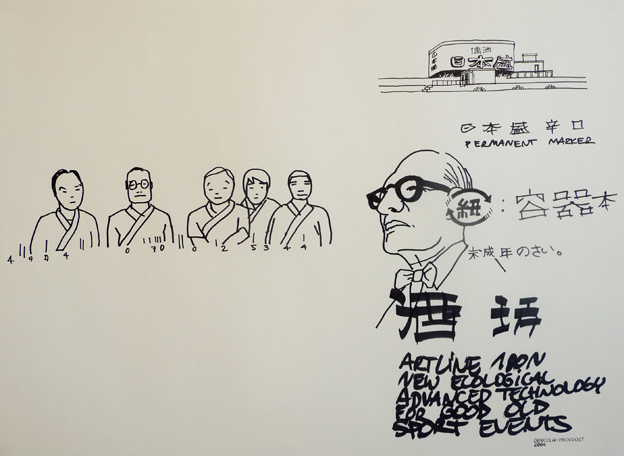 日本盛
日本盛 辛口
PERMANENT MARKER
: 容器本
未成年のさい。
4 9 0 4 0 70 0 2 5 3 4 4
酒
ARTLINE 100N
NEW ECOLOGICAL
ADVANCED TECHNOLOGY
FOR GOOD OLD
SPORT EVENTS
2004